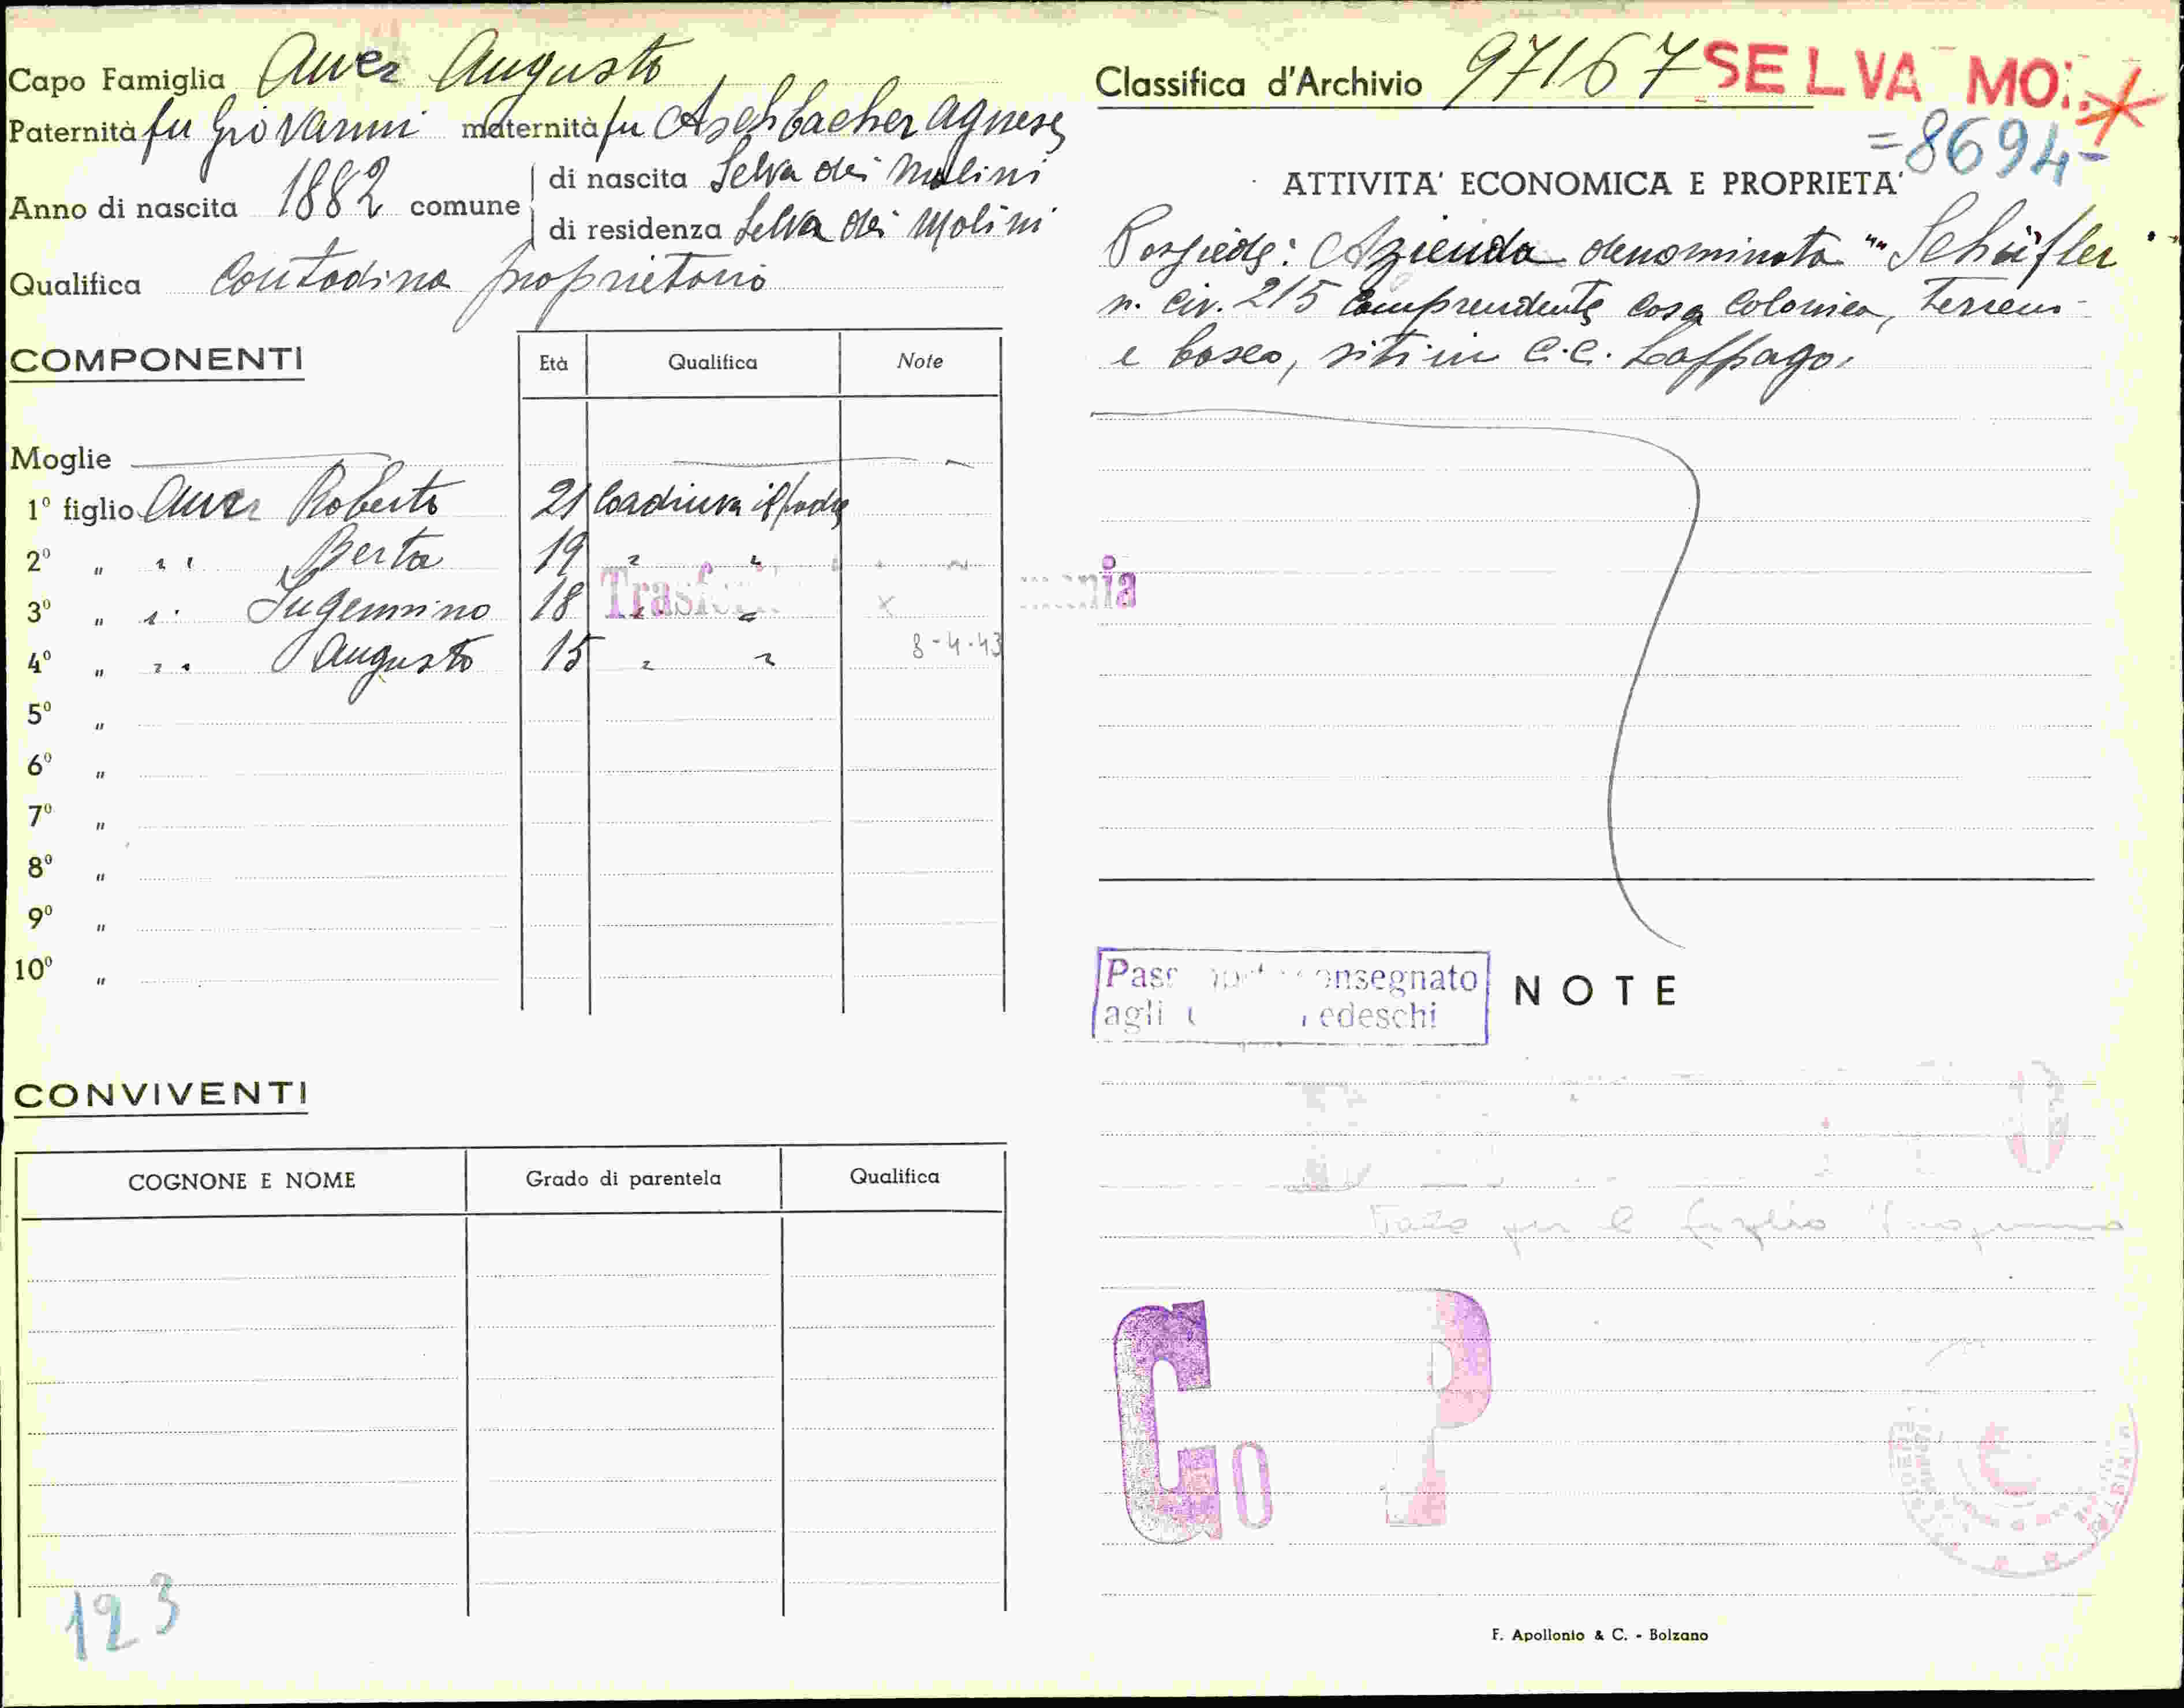 Capo Famiglia Auer Augusto
Paternità fu Giovanni maternità fu Aschbacher Agnese
Anno di nascita 1882 comune
di nascita Selva dei Molini
di residenza Selva dei Molini
Qualifica Contadino proprietario
COMPONENTI
Età Qualifica Note
Moglie
1° figlio Auer Roberto 21 Coadiuva il padre
2° „ „ Berta 19 „ „
3° „ „ 18 „ „
4° „ „ Augusto 15 „ „ 8-4-43
5° „
6° „
7° „
8° „
9° „
10° „
CONVIVENTI
COGNONE E NOME Grado di parentela Qualifica
123
Classifica d'Archivio 97167 SELVA MO:.
=8694-
ATTIVITA' ECONOMICA E PROPRIETA'
Possiede: Azienda denominata "Schäfler"
n. civ. 215 comprendente casa colonica, terreni
e bosco, siti in C.C. Lappago.
NOTE
agli
per il figlio
Go P
F. Apollonio & C. - Bolzano